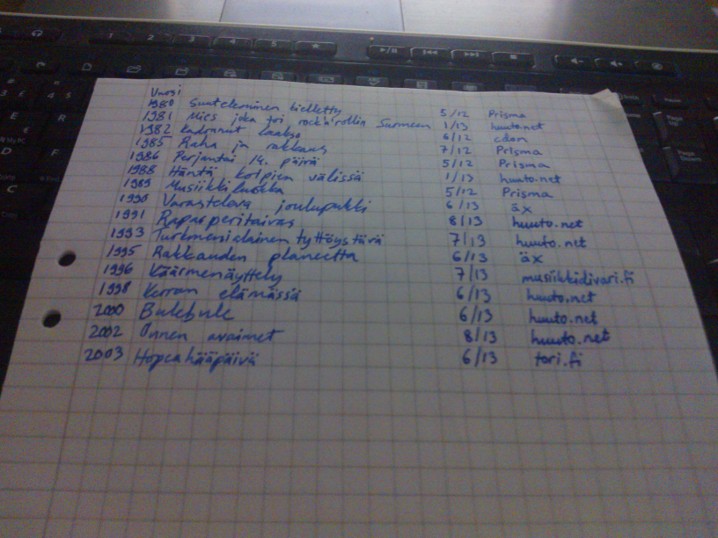 Vuosi
1980 Suuteleminen kielletty 5/12 Prisma
1981 Mies joka toi rock'n'rollin Suomeen 1/13 huuto.net
1982 kadonnut laakso 6/12 cdon
1985 Raha ja rakkaus 7/12 Prisma
1986 Perjantai 14. päivä 5/12 Prisma
1988 Häntä koipien välissä 1/13 huuto.net
1989 Musiikkiluokka 5/12 Prisma
1990 Varastelava joulupukki 6/13 äx
1991 Raparperitaivas 8/13 huuto.net
1993 Turkmenialainen tyttöystävä 7/13 huuto.net
1995 Rakkauden planeetta 6/13 äx
1996 Käärmenäyttely 7/13 musiikkidivari.fi
1998 Kerran elämässä 6/13 huuto.net
2000 Bulebule 6/13 huuto.net
2002 Onnen avaimet 8/13 huuto.net
2003 Hopeahääpäivä 6/13 tori.fi